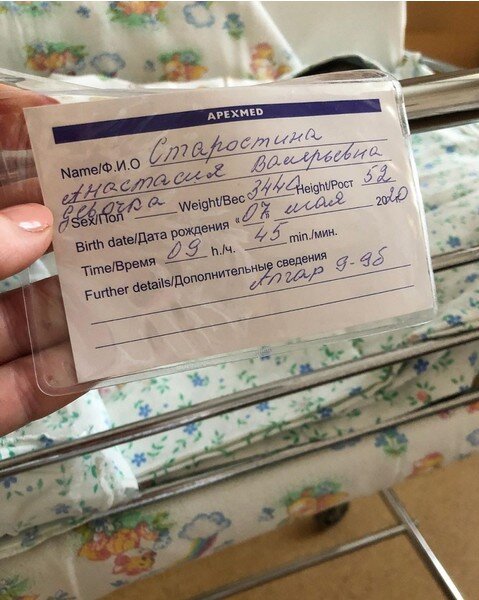 APEXMED
Name/Ф.И.О Старостина
Анастасия Валерьевна
девочка
Sex/Пол Weight/Вес 3440 Height/Рост 52
Birth date/Дата рождения «07 мая 2020
Time/Время 09 h./ч. 45 min./мин.
Further details/Дополнительные сведения
Апгар 9-9б